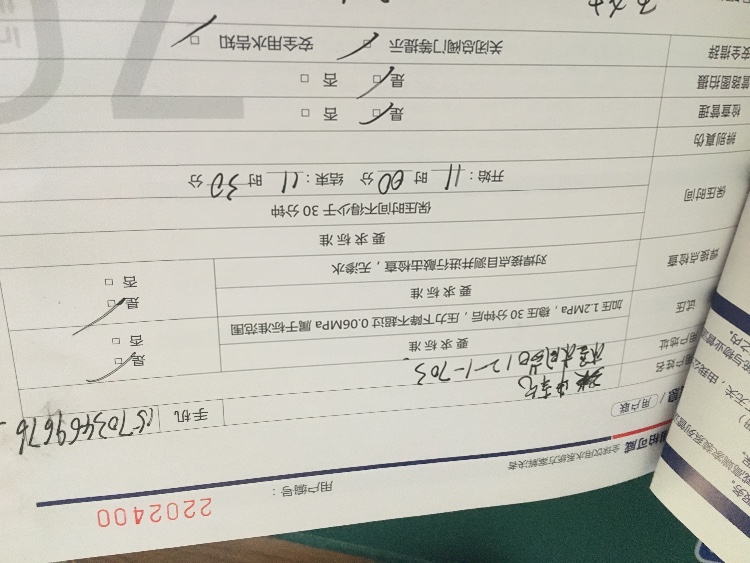 用户编号：
2202400
全球饮用水系统方案解决者
柏可威
用户联
用户姓名
手机 15703469676
用户地址 12-1-703
试压
要求标准
加压1.2MPa，稳压30分钟后，压力下降不超过0.06MPa属于标准范围
是 □
否 □
焊接点检查
要求标准
对焊接点目测并进行敲击检查，无渗水
是 □
否 □
保压时间
要求标准
保压时间不得少于30分钟
开始：11时00分 结束：11时30分
辨别真伪
检查管理 是 □ 否 □
管路图拍摄 是 □ 否 □
安全措辞 关闭总阀门等提示 □ 安全用水告知 □